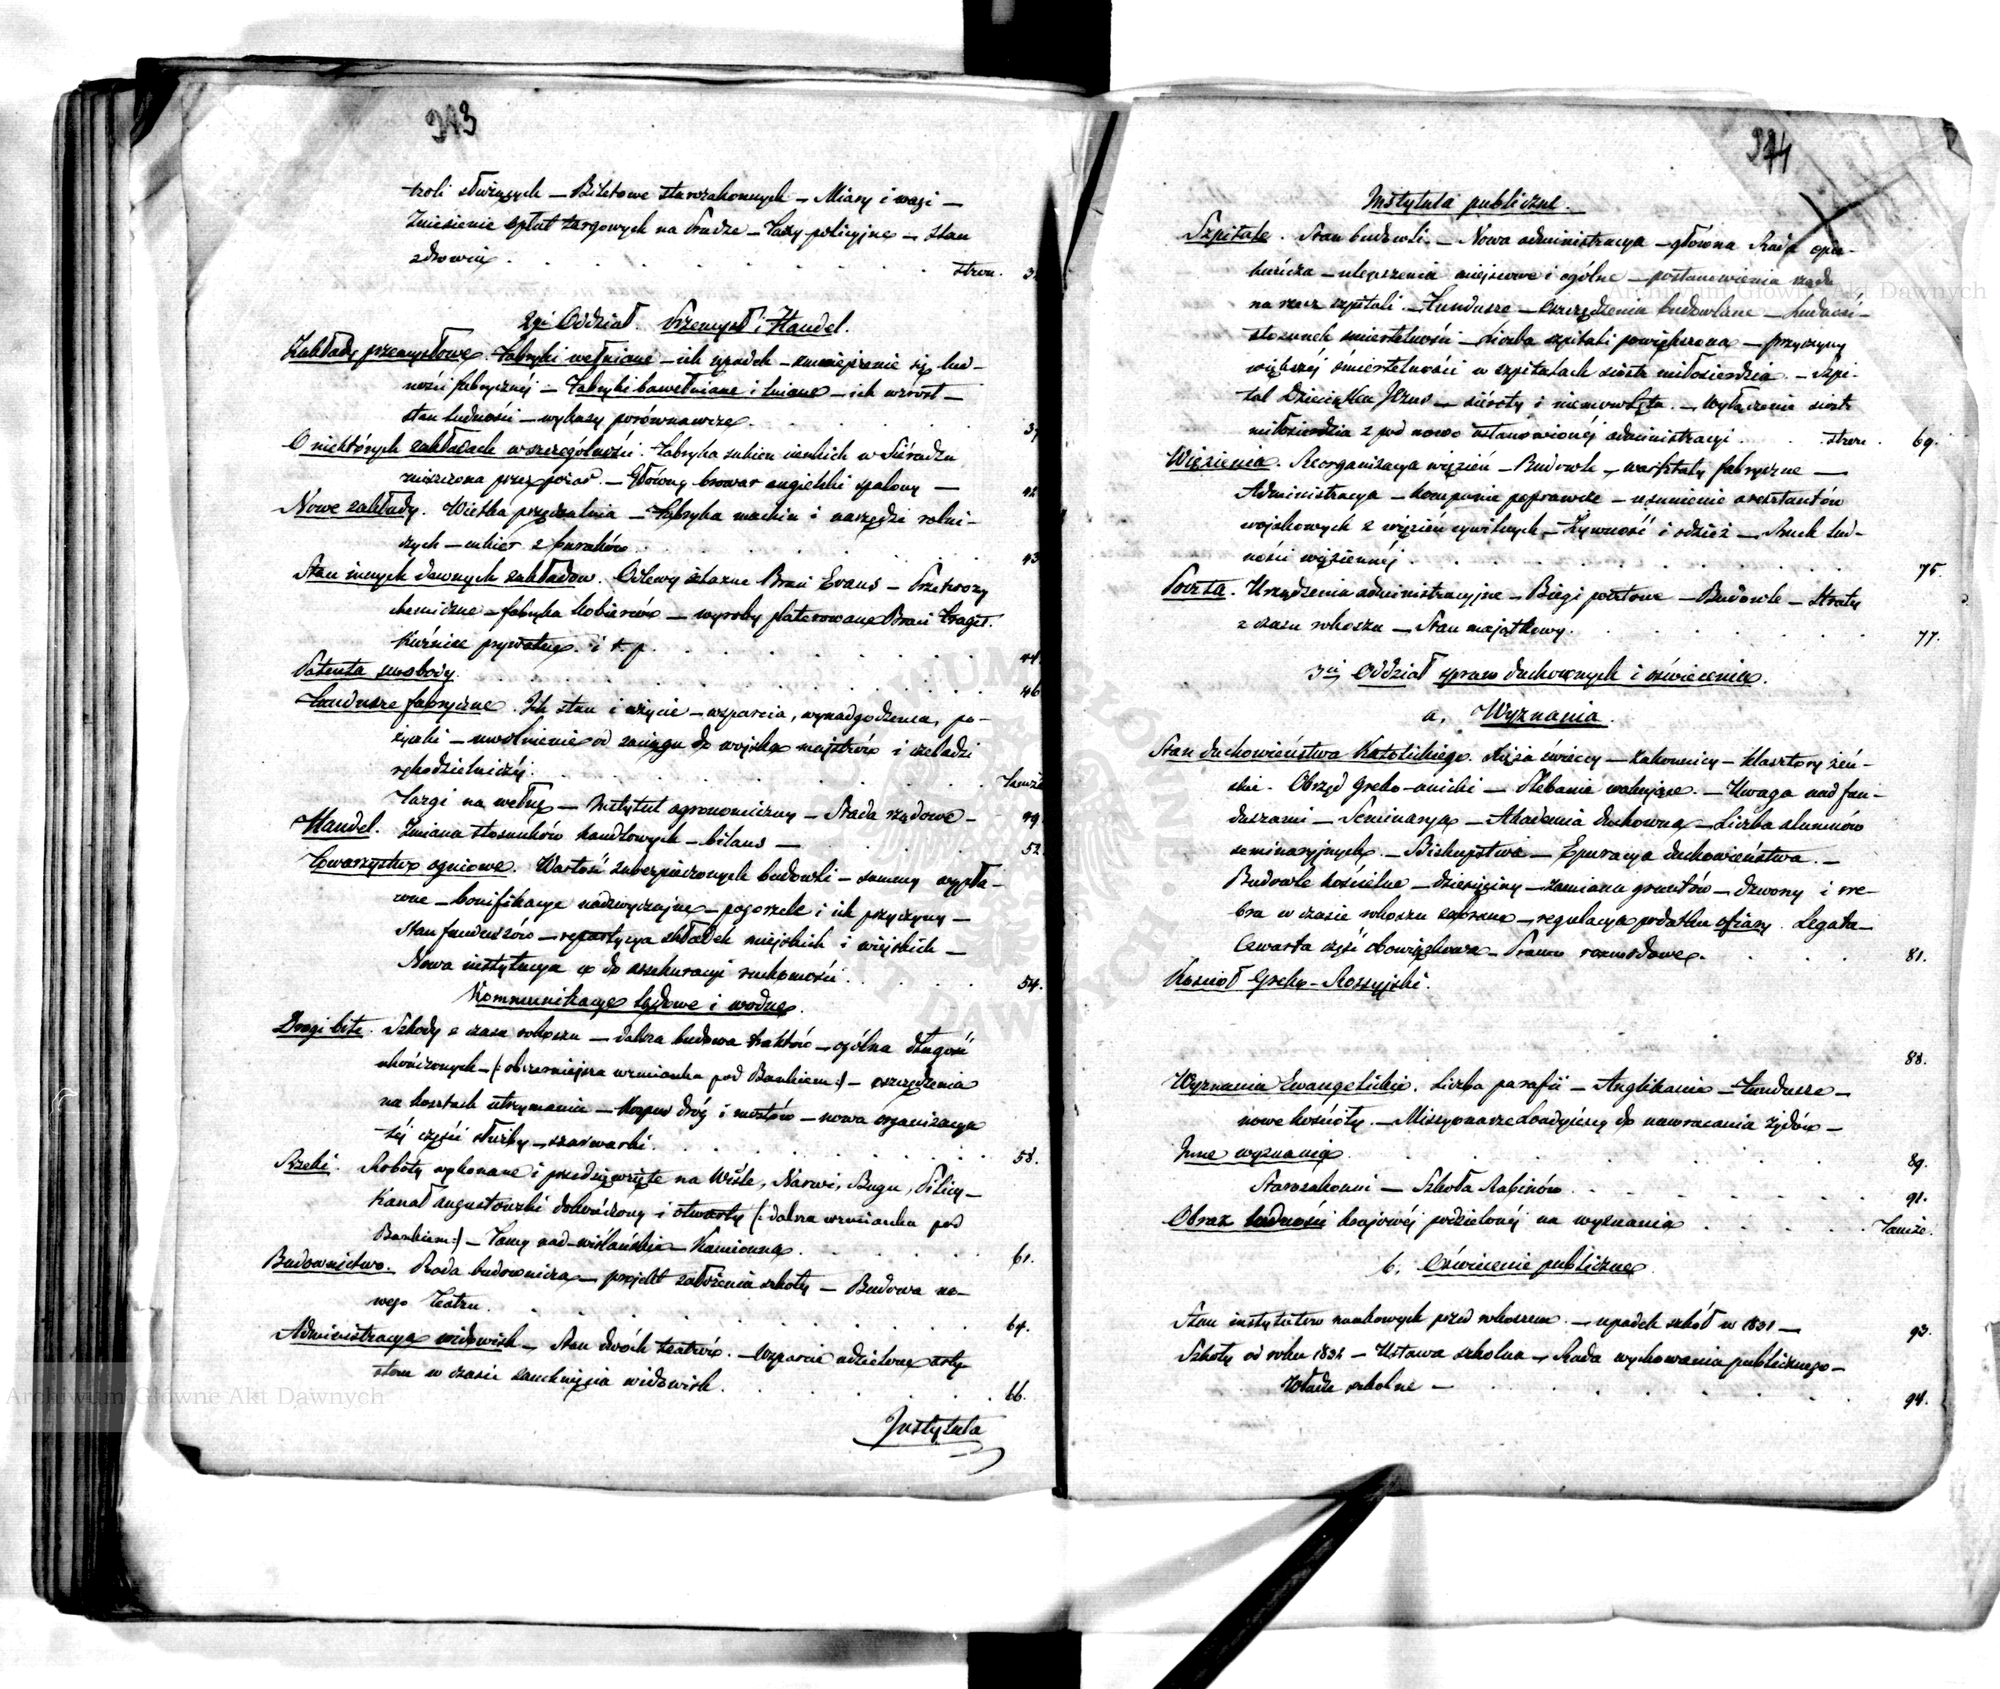 373
troli służących — Biletowe starozakonnych — Miary i wagi —
Zniesienie opłat targowych na Pradze — Taxy policyjne — Stan
zdrowia . . . . . . . . stron. 3
2gi Oddział. Przemysł i Handel.
Zakłady przemysłowe. Fabryki wełniane — ich upadek — zmniejszenie się lud-
ności fabrycznéj — Fabryki bawełniane i lniane — ich wzrost —
stan ludności — wykazy porównawcze . . . . 37
O niektórych zakładach w szczególności. Fabryka sukien cienkich w Sieradzu
zniszczona przez pożar — Główny browar angielski spalony — 42
Nowe zakłady. Wielka przędzalnia — Fabryka machin i narzędzi rolni-
czych — cukier z buraków . . . . . 43
Stan innych dawnych zakładów. Odlewy żelazne Braci Evans — Przetwory
chemiczne — fabryka kobierców — wyroby platerowane Braci Fraget.
Kuźnice prywatne i t. p. . . . . . 44.
Patenta swobody . . . . . . . 46
Fundusze fabryczne. Ich stan i użycie — wsparcia, wynadgodzenia, po-
życzki — uwolnienie od zaciągu do wojska majstrów i czeladzi
rękodzielniczéj. . . . . . . . Tamże
Targi na wełnę — Instytut agronomiczny — Stada rządowe — 49.
Handel. Zmiana stosunków handlowych — bilans — . . . 52.
Towarzystwo ogniowe. Wartość zabezpieczonych budowli — summy wypła-
cone — bonifikacye nadzwyczajne — pogorzele i ich przyczyny —
Stan funduszów — repartycya składek miejskich i wiejskich —
Nowa instytucya co do assekuracyi ruchomości . . . . 54.
Kommunikacye lądowe i wodne.
Drogi bite. Szkody z czasu rokoszu — dalsza budowa traktów — ogólna długość
ukończonych — (: obszerniejsza wzmianka pod Bankiem :) — oszczędzenia
na kosztach utrzymania — Korpus dróg i mostów — nowa organizacya
téj części służby — szarwarki. . . . . . . 58.
Rzeki. Roboty wykonane i przedsięwzięte na Wiśle, Narwi, Bugu, Pilicy —
Kanał augustowski dokończony i otwarty (: dalsza wzmianka pod
Bankiem :) — Tamy nad-wiślańskie — Kamionna . . . . 61.
Budownictwo. Rada budownicza — projekt założenia szkoły — Budowa no-
wego Teatru. . . . . . . . . 64.
Administracya widowisk — Stan dwóch teatrów. — Wsparcie udzielone arty-
stom w czasie zamknięcia widowisk. . . . . . . 66.
Instytuta
374
Instytuta publiczne.
Szpitale. Stan budowli — Nowa administracya — główna Rada opie-
kuńcza — ulepszenia miejscowe i ogólne — postanowienia rządu
na rzecz szpitali. — Fundusze — Oszczędzenia budowlane — Ludność —
stosunek śmiertelności — Liczba szpitali powiększona — przyczyny
większéj śmiertelności w szpitalach siostr miłosierdzia. — Szpi-
tal Dzieciątka Jezus — sieroty i niemowlęta. — Wyłączenie siostr
miłosierdzia z pod nowo ustanowionéj administracyi . . . stron. 69.
Więzienia. Reorganizacya więzień — Budowle — warsztaty fabryczne —
Administracya — kompanie poprawcze — usunienie aresztantów
wojskowych z więzień cywilnych — Żywność i odzież — Ruch lud-
ności więziennéj . . . . . . . 75.
Poczta. Urządzenia administracyjne — Biegi pocztowe — Budowle — Straty
z czasu rokoszu — Stan majątkowy. . . . . . . 77.
3ci Oddział spraw duchownych i oświecenia.
a, Wyznania.
Stan duchowieństwa Katolickiego. Xięża świeccy — Zakonnicy — klasztory żeń-
skie. Obrząd Greko-unicki — Plebanie wakujące. — Uwaga nad fun-
duszami — Seminarya — Akademia duchowna — Liczba alumnów
seminaryjnych. — Biskupstwa — Epuracya duchowieństwa. —
Budowle kościelne — dziesięciny — zamiana gruntów — dzwony i sre-
bra w czasie rokoszu zabrane — regulacya podatku ofiary. Legata —
Czwarta część obowiązkowa — Prawo rozwodowe. . . . 81.
Kościół Greko-Rossyjski.
88.
Wyznania Ewangelickie. Liczba parafii — Anglikanie — Fundusze —
nowe kościoły. — Missyonarze Londyńscy do nawracania żydów —
Inne wyznania . . . . . . . . . 89.
Starozakonni — Szkoła Rabinów . . . . . . 91.
Obraz ludności krajowéj podzielonéj na wyznania . . . . Tamże.
b. Oświecenie publiczne.
Stan instytutów naukowych przed rokoszem. — upadek szkół w 1831 — 93.
Szkoły od roku 1832 — Ustawa szkolna — Rada wychowania publicznego —
Władze szkolne — . . . . . . . 94.
Archiwum Główne Akt Dawnych
Archiwum Główne Akt Dawnych